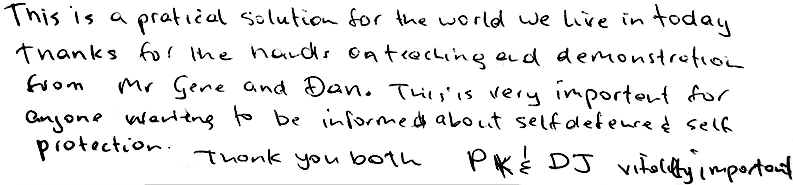 This is a pratical solution for the world we live in today
thanks for the hands on teaching and demonstration
from Mr Gene and Dan. This is very important for
anyone wanting to be informed about self defence & self
protection.
Thank you both PK & DJ vitally important